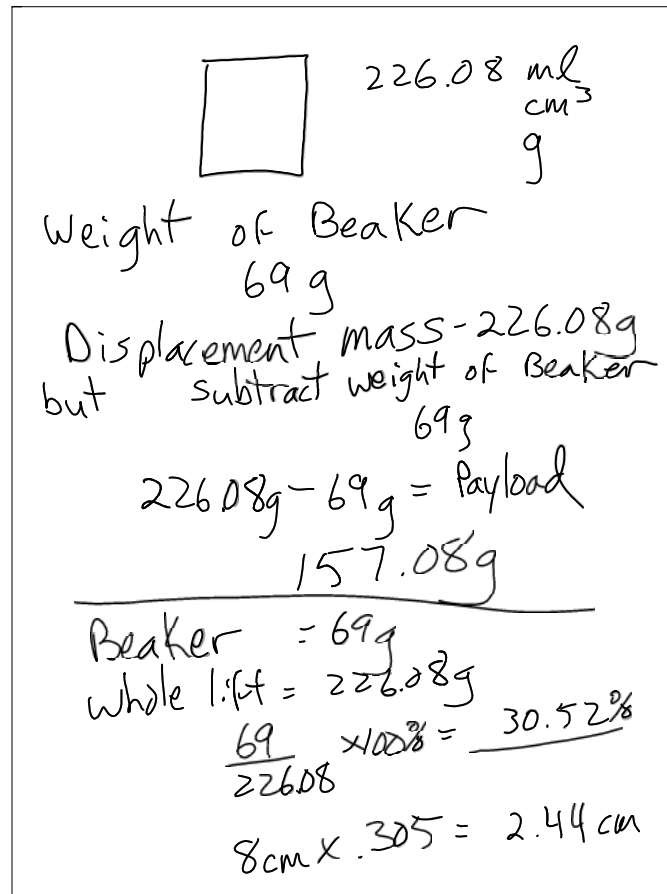 226.08 ml
cm³
g
Weight of Beaker
69 g
Displacement mass - 226.08g
but subtract weight of Beaker
69g
226.08g - 69g = Payload
157.08g
Beaker = 69g
Whole lift = 226.08g
69/226.08 ×100% = 30.52%
8cm × .305 = 2.44 cm